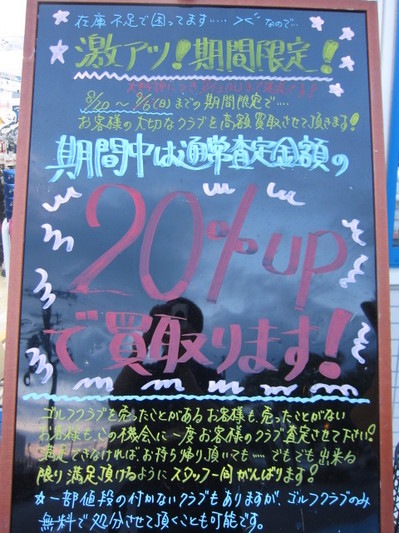 在庫不足で困ってます‥‥ なので…
激アツ!期間限定!
～9/6(日)までの期間限定で‥‥
お客様の大切なクラブを高額買取させて頂きます!
期間中は通常査定金額の
20%UP
で買取ります!
ゴルフクラブを売ったことがあるお客様も、売ったことがない
お客様も、この機会に一度お客様のクラブ査定させて下さい!
できなければ、お持ち帰り頂いても‥‥ でもでも出来る
限り満足頂けるようにスタッフ一同がんばります!
☆一部値段の付かないクラブもありますが、ゴルフクラブのみ
無料で処分させて頂くことも可能です。